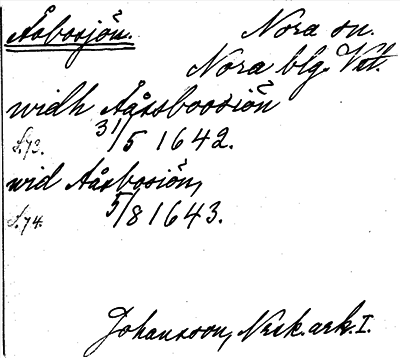 Åsbosjön. Nora sn.
Nora blg. Vstl.
widh Aåssboosiön
s.73. 31/5 1642.
wid Aåsbosiön,
s.74. 5/8 1643.
Johansson, Nerk. ark. I.